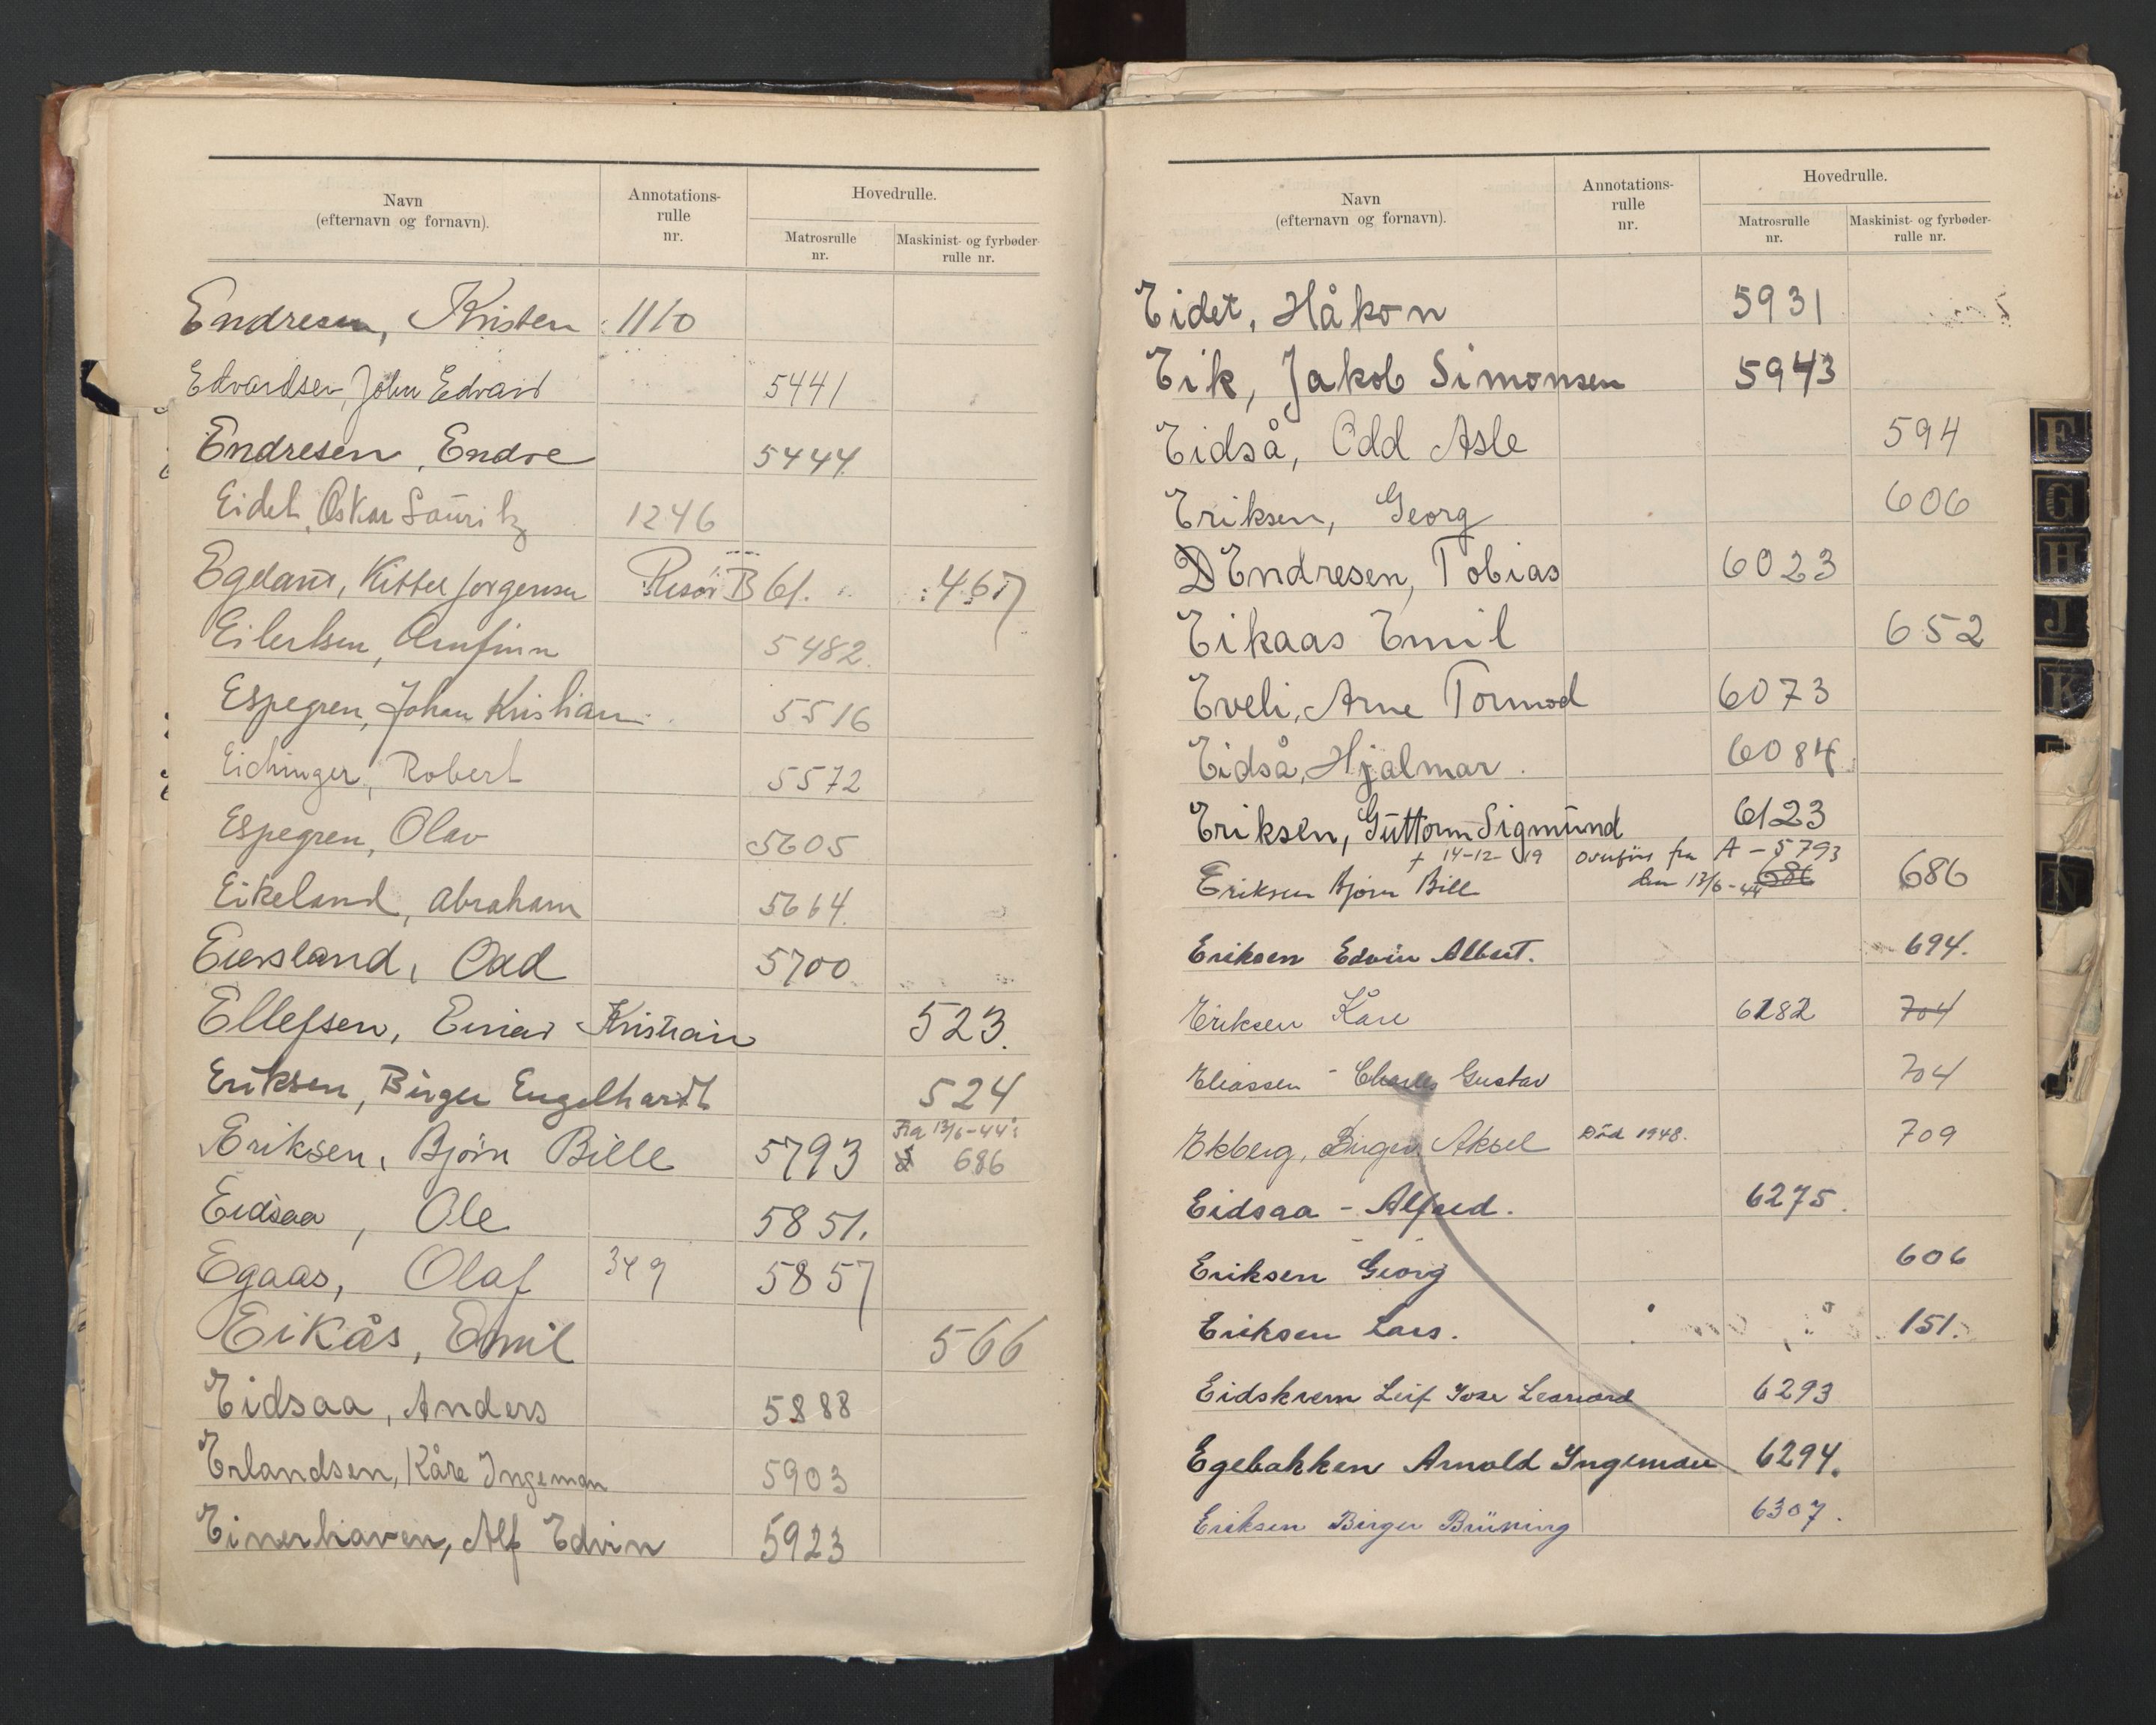 Navn
(efternavn og fornavn).
Annotations-
rulle
nr.
Hovedrulle.
Matrosrulle
nr.
Maskinist- og fyrbøder-
rulle nr.
Endresen, Kristen 1110
Edvardsen, John Edvard 5441
Endresen, Endre 5444.
Eidet, Oskar Lauritz 1246
Egeland, Kittel Jørgensen Risør B 61. 467
Eilertsen, Arnfinn 5482.
Espegren, Johan Kristian 5516
Eichinger, Robert 5572
Espegren, Olav 5605
Eikeland, Abraham 5664.
Eiersland, Odd 5700
Ellefsen, Einar Kristian 523.
Eriksen, Birger Engelhardt 524
Fra 13/6-44 i
Eriksen, Bjørn Bille 5793 686
Eidsaa, Ole 5851.
Egaas, Olaf 349 5857
Eikås, Emil 566
Eidsaa, Anders 5888
Erlandsen, Kåre Ingeman 5903
Einerhaven, Alf Edvin 5923
Navn
(efternavn og fornavn).
Annotations-
rulle
nr.
Hovedrulle.
Matrosrulle
nr.
Maskinist- og fyrbøder-
rulle nr.
Eidet, Håkon 5931
Eik, Jakob Simonsen 5943
Eidså, Odd Asle 594
Eriksen, Georg 606
Endresen, Tobias 6023
Eikaas Emil 652
Eveli, Arne Tormod 6073
Eidså, Hjalmar 6084.
Eriksen, Guttorm Sigmund 6123
+ 14-12-19 overført fra A-5793
Eriksen Bjørn Bill den 13/6-44 686 686
Eriksen Edvin Albert. 694.
Eriksen Kåre 6282 704
Eliassen - Charles Gustav 704
Ekberg, Birger Aksel Død 1948. 709
Eidsaa - Alfred. 6275.
Eriksen Georg 606
Eriksen Lars. 151.
Eidskrem Leif Tore Leonard 6293
Egebakken Arnold Ingeman 6294.
Eriksen Birger Brüning 6307.
F
G
H
J
K
N